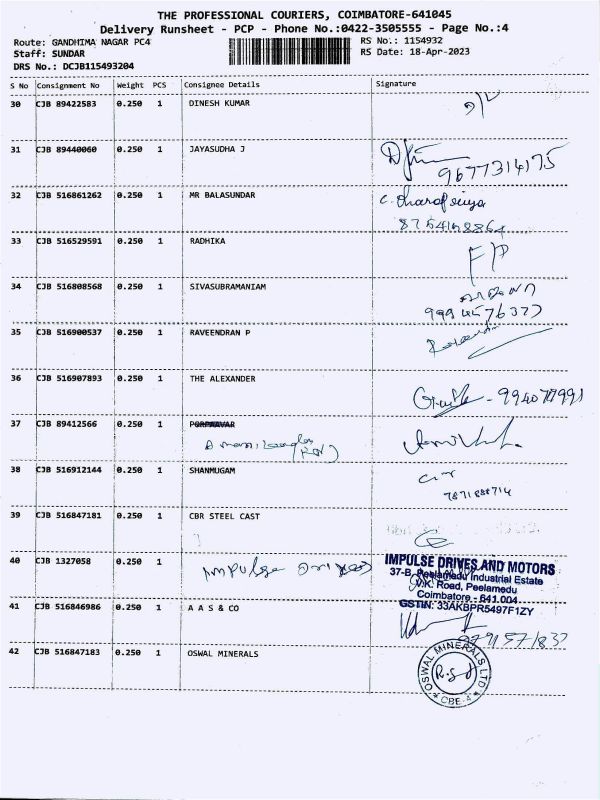 THE PROFESSIONAL COURIERS, COIMBATORE-641045
Delivery Runsheet - PCP - Phone No.:0422-3505555 - Page No.:4
Route: GANDHIMA NAGAR PC4 RS No.: 1154932
Staff: SUNDAR RS Date: 18-Apr-2023
DRS No.: DCJB115493204
S No Consignment No Weight PCS Consignee Details Signature
30 CJB 89422583 0.250 1 DINESH KUMAR
31 CJB 89440060 0.250 1 JAYASUDHA J
9677314175
32 CJB 516861262 0.250 1 MR BALASUNDAR
33 CJB 516529591 0.250 1 RADHIKA
34 CJB 516808568 0.250 1 SIVASUBRAMANIAM
35 CJB 516900537 0.250 1 RAVEENDRAN P
36 CJB 516907893 0.250 1 THE ALEXANDER
37 CJB 89412566 0.250 1
38 CJB 516912144 0.250 1 SHANMUGAM
39 CJB 516847181 0.250 1 CBR STEEL CAST
40 CJB 1327058 0.250 1 Impulse
IMPULSE DRIVES AND MOTORS
37-B, Peelamedu Industrial Estate
V.K. Road, Peelamedu
Coimbatore - 641 004
GSTIN: 33AKBPR5497F1ZY
41 CJB 516846986 0.250 1 A A S & CO
42 CJB 516847183 0.250 1 OSWAL MINERALS
OSWAL MINERALS LTD
CBE-4